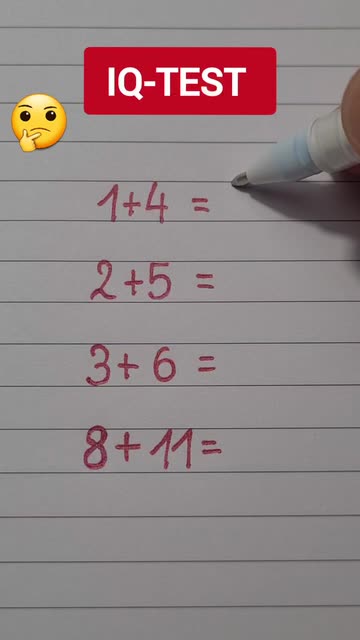 IQ-TEST
1+4 =
2+5 =
3+ 6 =
8+11=